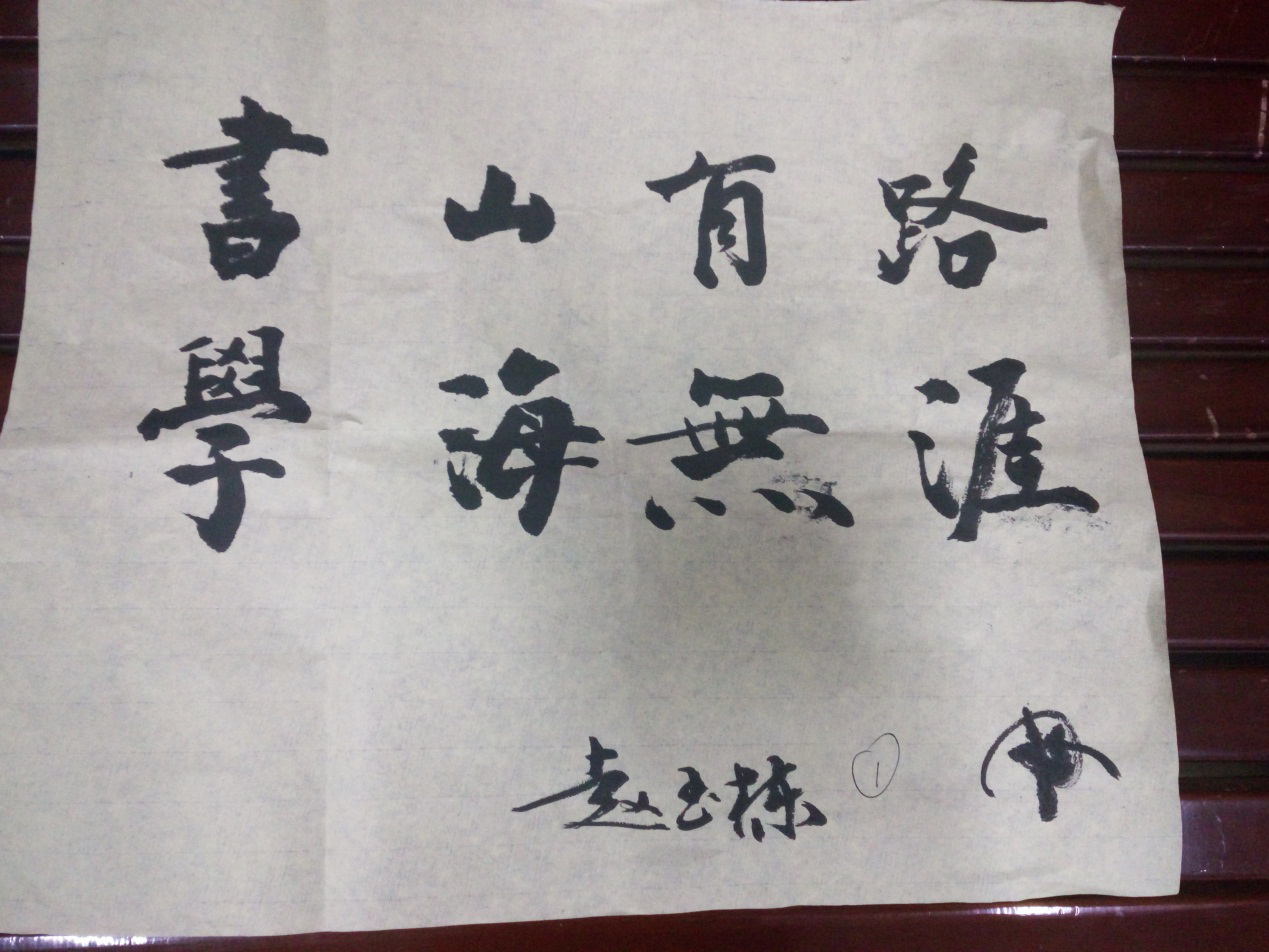 書山有路
學海無涯
赵玉栋 1